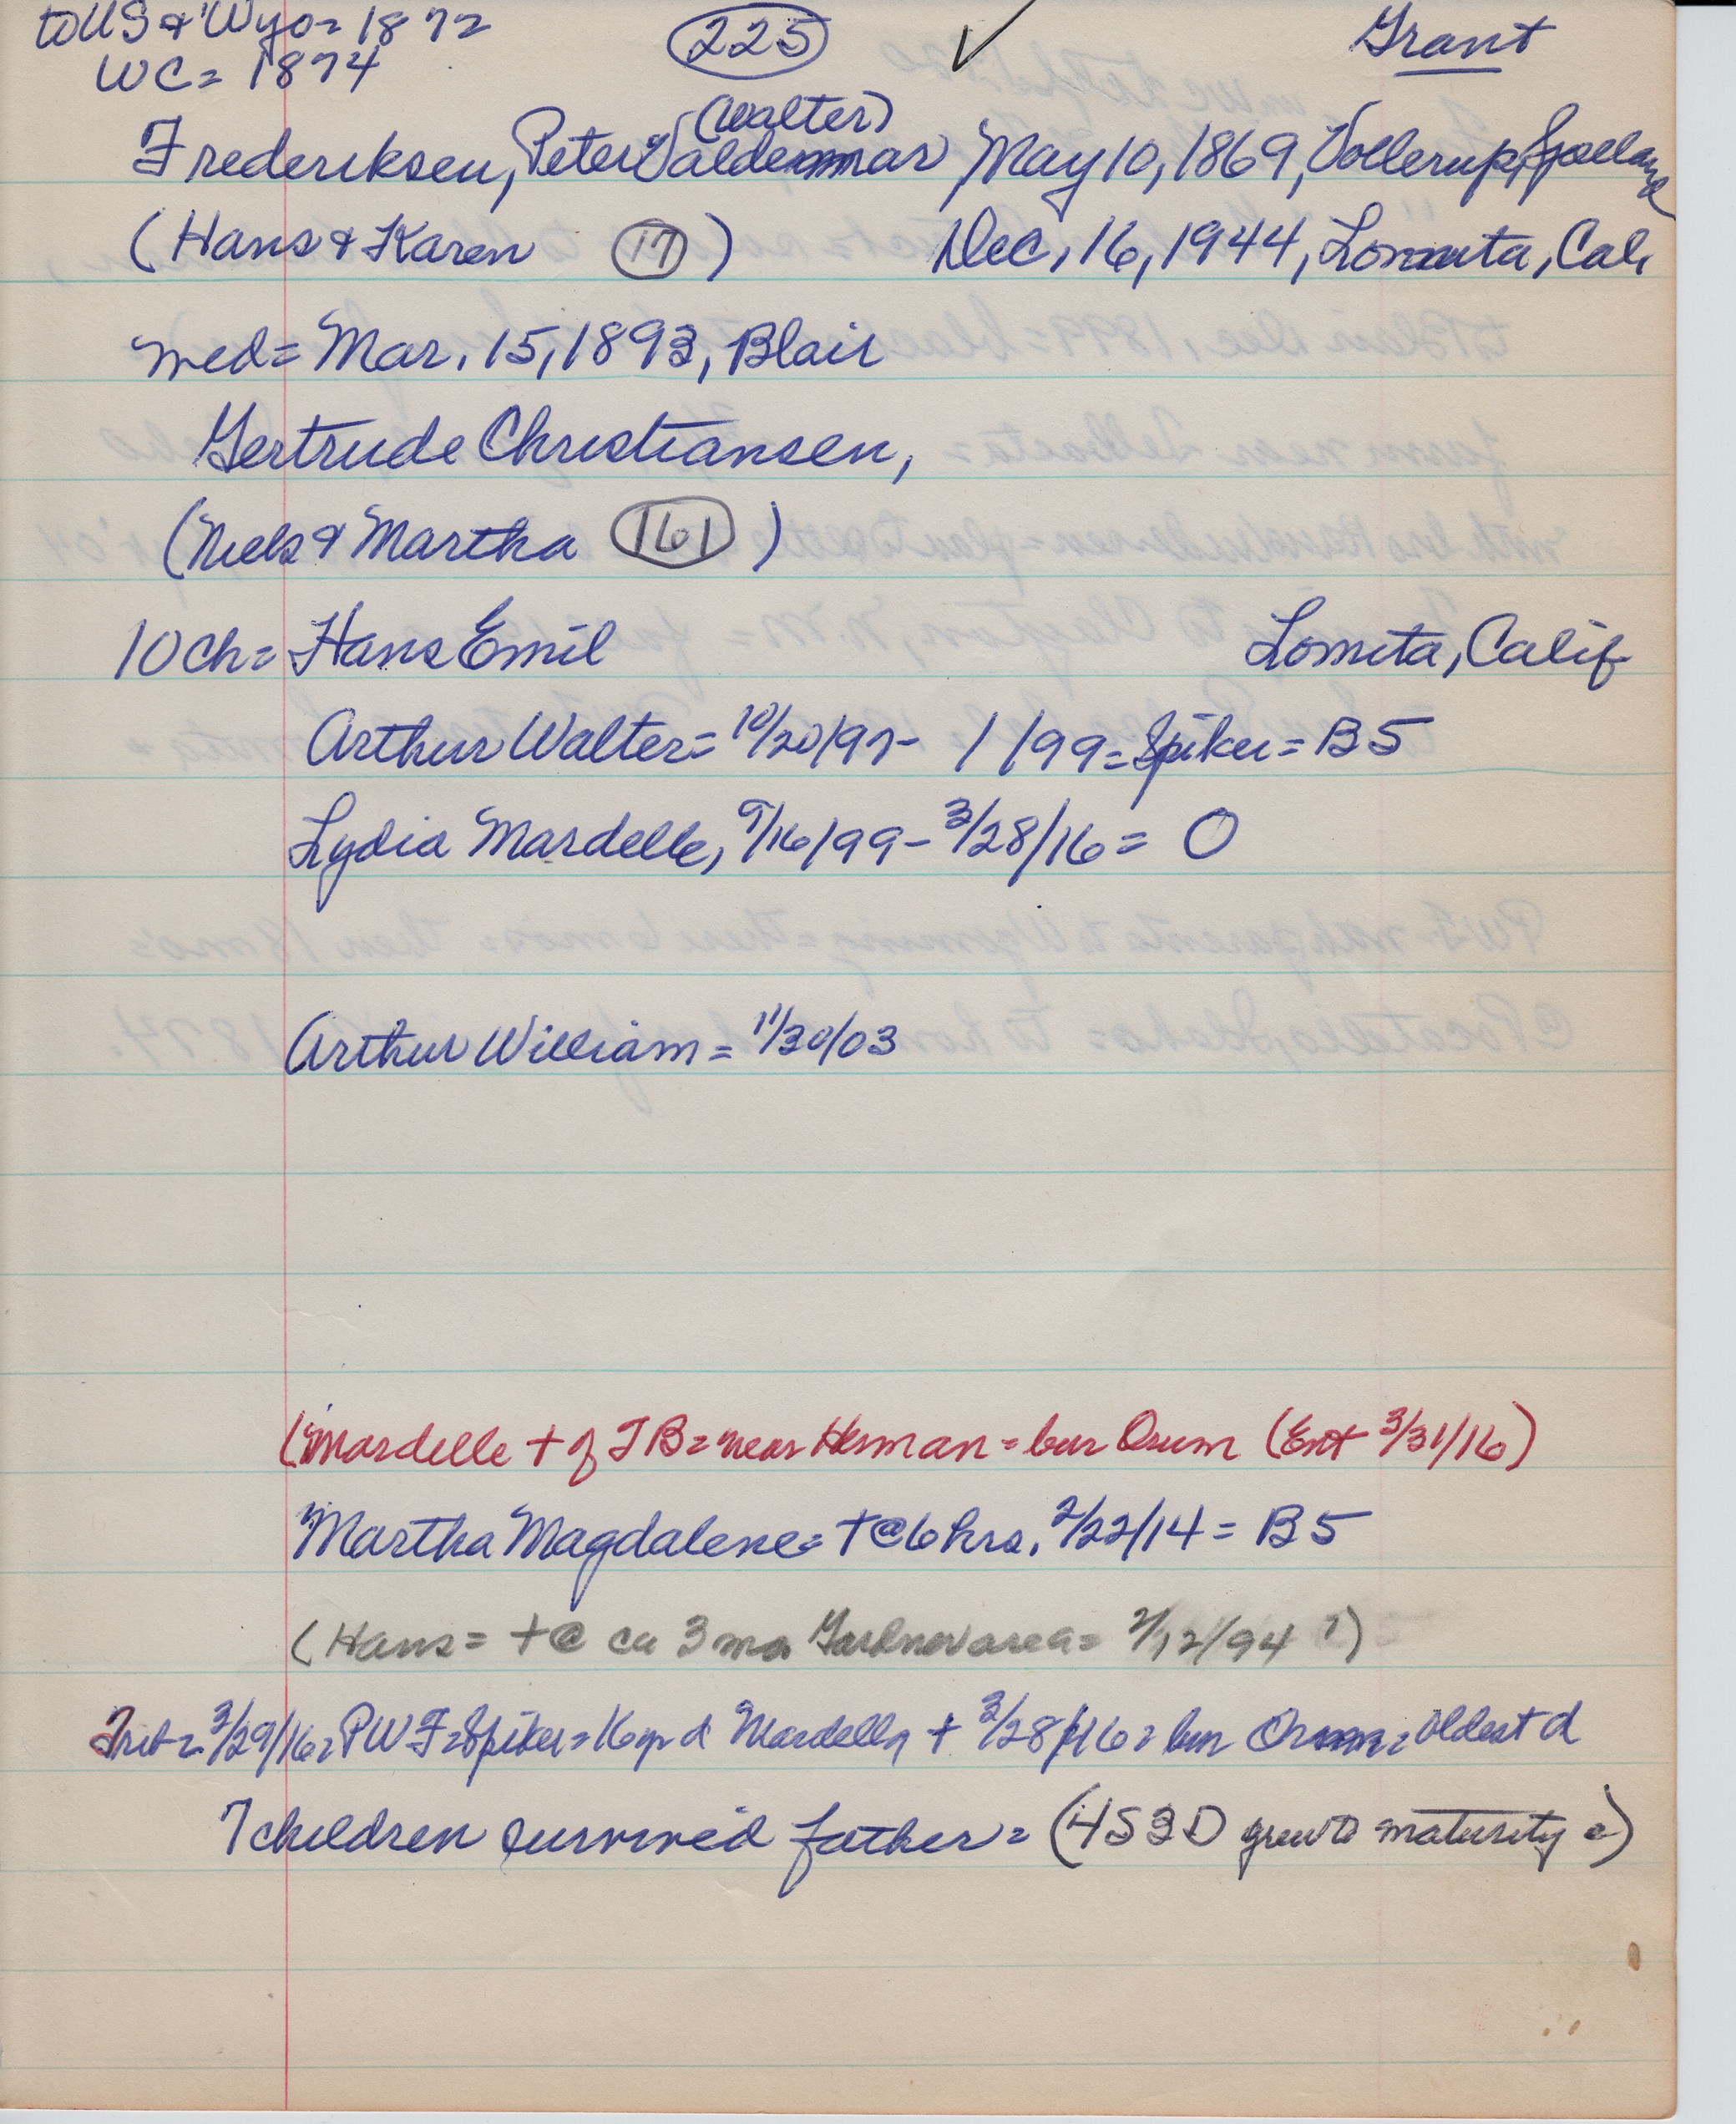 to US & Wyo = 1872 (225) ✓ Grant
WC = 1874
(Walter)
Frederiksen, Peter Valdemmar May 10, 1869, Vollerup, Sjaelland
(Hans & Karen (17)) Dec, 16, 1944, Lomita, Cal,
wed = Mar. 15, 1893, Blair
Gertrude Christiansen,
(Niels & Martha (161))
10 ch = Hans Emil Lomita, Calif
Arthur Walter = 10/20/97 - 1/ /99 = Spiker = B5
Lydia Mardelle, 9/16/99 - 3/28/16 = O
Arthur William = 11/30/03
(Mardelle + of TB = near Herman = bur Orum (Ent 3/31/16)
Martha Magdalene = +@6 hrs. 2/22/14 = B5
(Hans = +@ ca 3 mo Gardner area = 2/12/94 ?)
Trib = 3/29/16 = PWF = Spiker = 16 yr d Mardella + 3/28/16 = bur Orum = oldest d
7 children survived father = (4S 3D grew to maturity =)